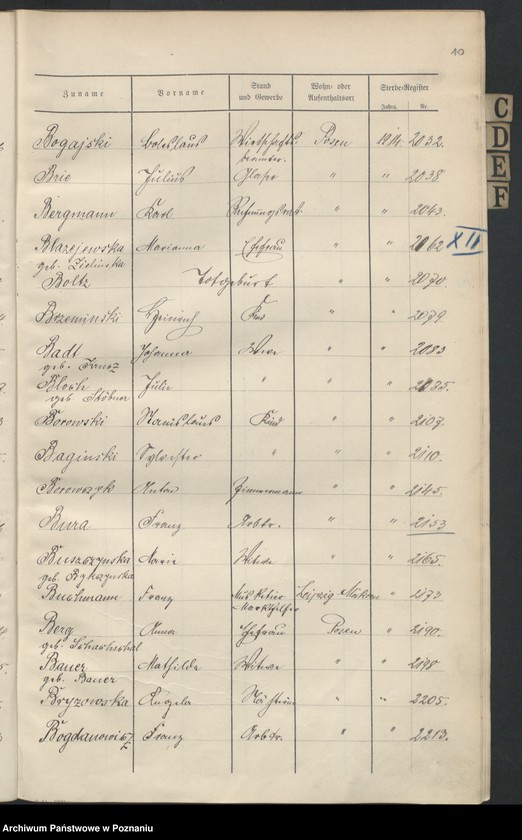 10
Zuname Vorname Stand und Gewerbe Wohn- oder Aufenthaltsort Sterbe-Register
Jahrg. Nr.
Bogajski Boleslaus Wirthschafts- Posen 1914. 2032.
beamter.
Brie Julius Glaser " " 2038
Bergmann Karl Rechnungsrat " " 2043.
Blazejewska Marianna Ehefrau " " 2062 XII
geb. Zielinska
Boltz Totgeburt " " 2070.
Brzeminski Heinrich Kind " " 2079
Badt Johanna Wwe " " 2083
geb.
Bloch Julie " " "
geb. Stöbner
Borowski Stanislaus Kind " " 2107.
Baginski Sylvester " " " 2110.
Borowczyk Anton Zimmermann " " 2145.
Bura Franz Arbtr. " " 2153
Buszczynska Marie Witwe " " 2165.
geb.
Buchmann Franz Musketier Leipzig " 2172
Markthelfer
Berg Anna Ehefrau Posen " 2190.
geb.
Bauer Mathilde Witwe " " 2198
geb. Bauer
Bryzowska Angela Näherin " " 2205.
Bogdanowicz Franz Arbtr. " " 2213.
C
D
E
F
Archiwum Państwowe w Poznaniu